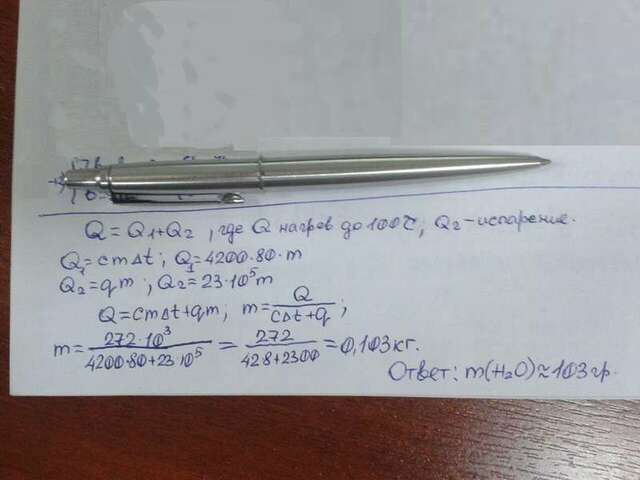 Q = Q1+Q2 , где Q нагрев до 100℃, Q2 - испарение.
Q1 = cmΔt ; Q1 = 4200·80·m
Q2 = qm ; Q2 = 23·10⁵m
Q = cmΔt + qm; m = Q / cΔt + q ;
m = 272·10³ / 4200·80+23·10⁵ = 272 / 42·8+2300 = 0,103 кг.
Ответ: m(H2O) ≈ 103 гр.